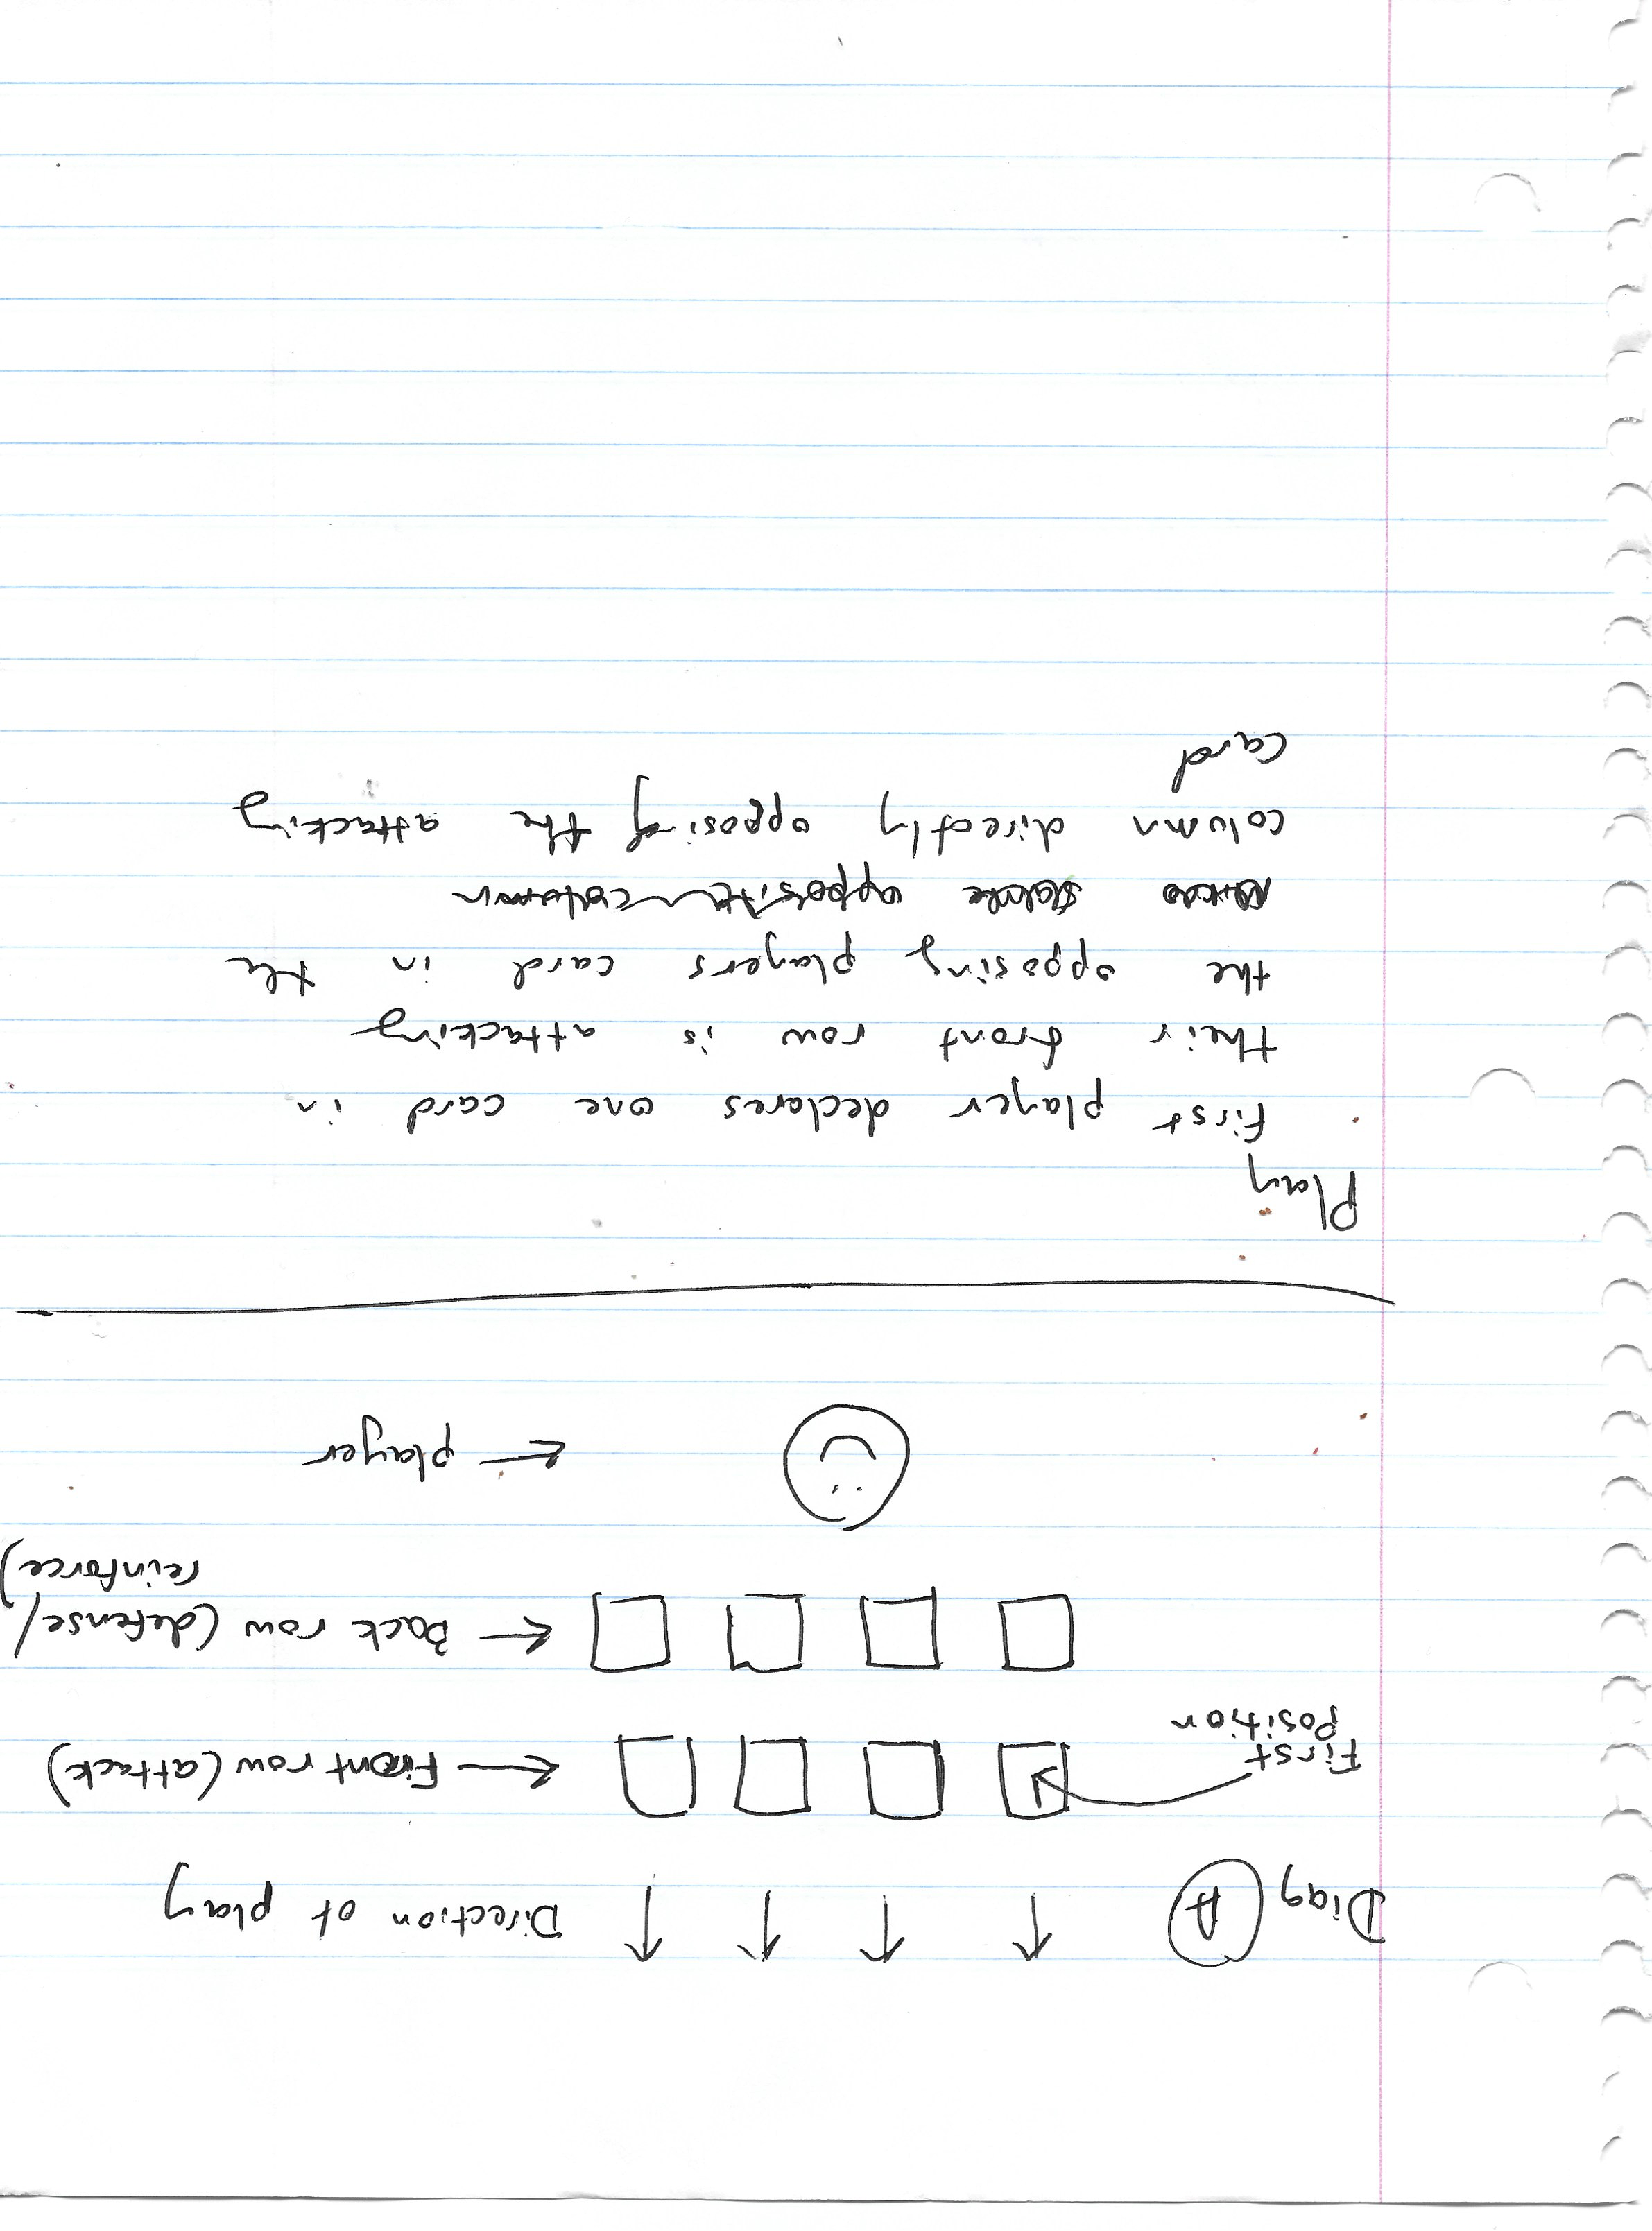 Diag A ↑ ↑ ↑ ↑ Direction of play
First
Position
← Front row (attack)
← Back row (defense/
reinforce)
← player
Play
First player declares one card in
their front row is attacking
the opposing players card in the
opposite column
column directly opposing the attacking
card